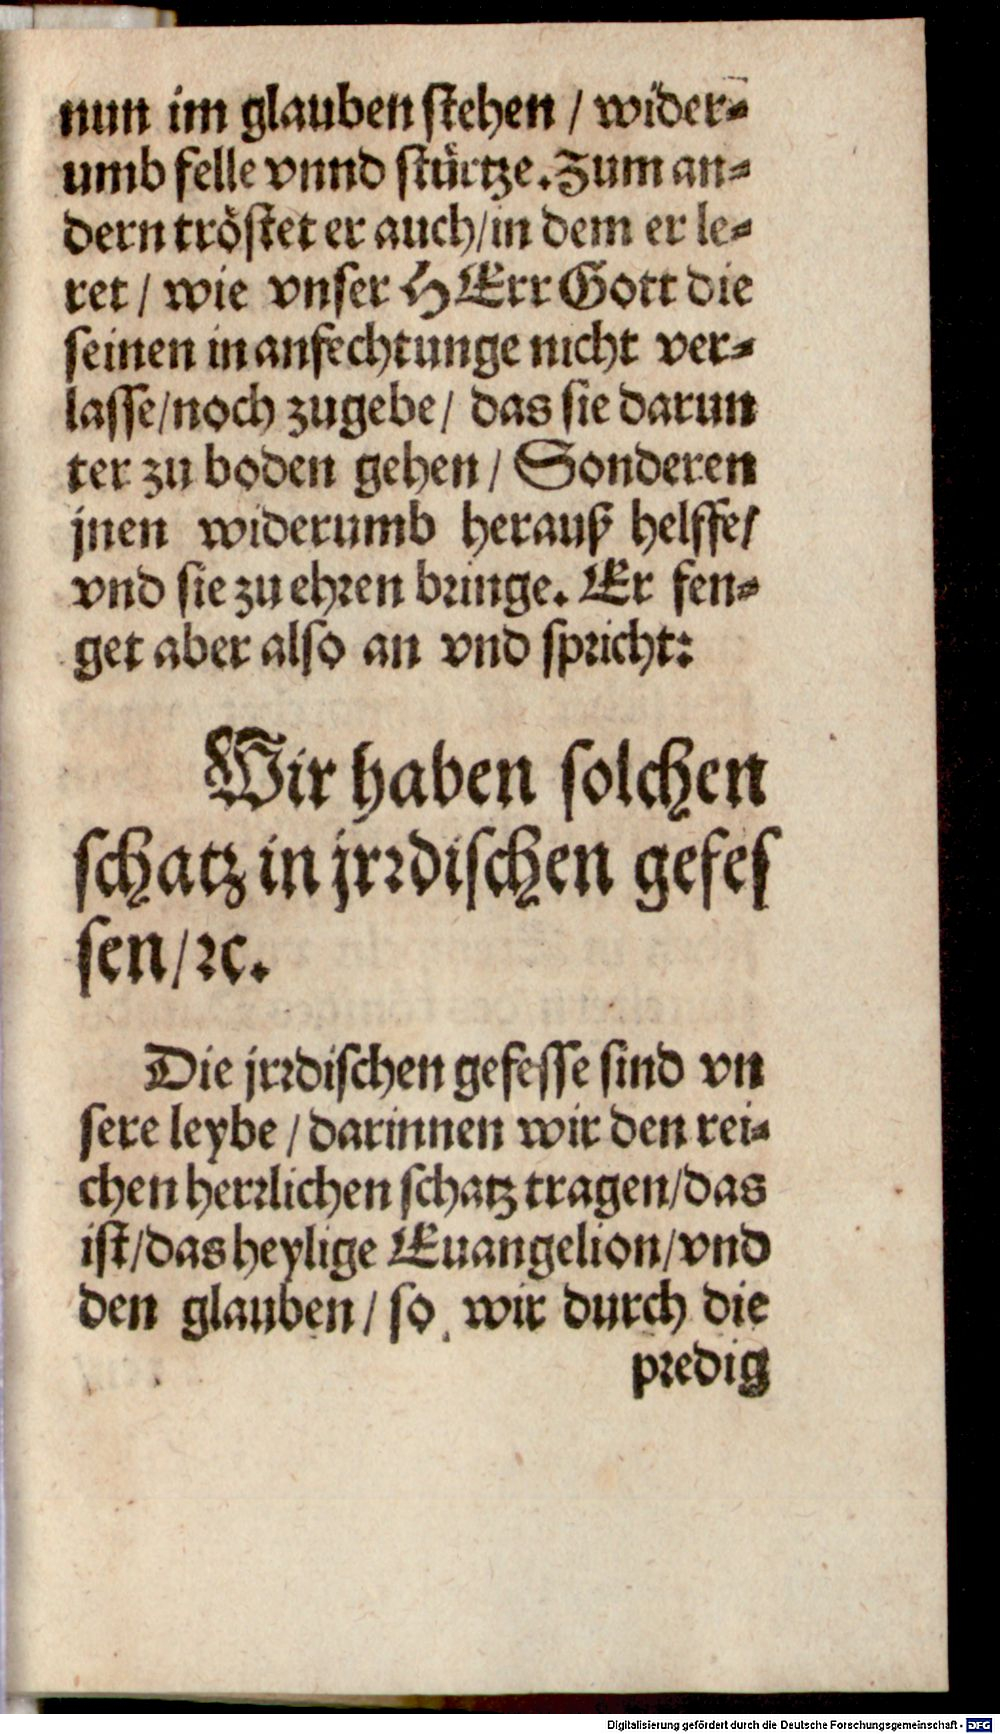 nun im glauben stehen / wider⸗
umb felle vnnd stürtze. Zum an⸗
dern tröstet er auch/in dem er le⸗
ret / wie vnser HErr Gott die
seinen in anfechtunge nicht ver⸗
lasse/noch zugebe/ das sie darun
ter zu boden gehen / Sonderen
jnen widerumb herauß helffe/
vnd sie zu ehren bringe. Er fen⸗
get aber also an vnd spricht:
Wir haben solchen
schatz in jrrdischen gefes
sen/ꝛc.
Die jrrdischen gefesse sind vn
sere leybe / darinnen wir den rei⸗
chen herrlichen schatz tragen/das
ist/das heylige Euangelion/vnd
den glauben / so wir durch die
predig
Digitalisierung gefördert durch die Deutsche Forschungsgemeinschaft - DFG